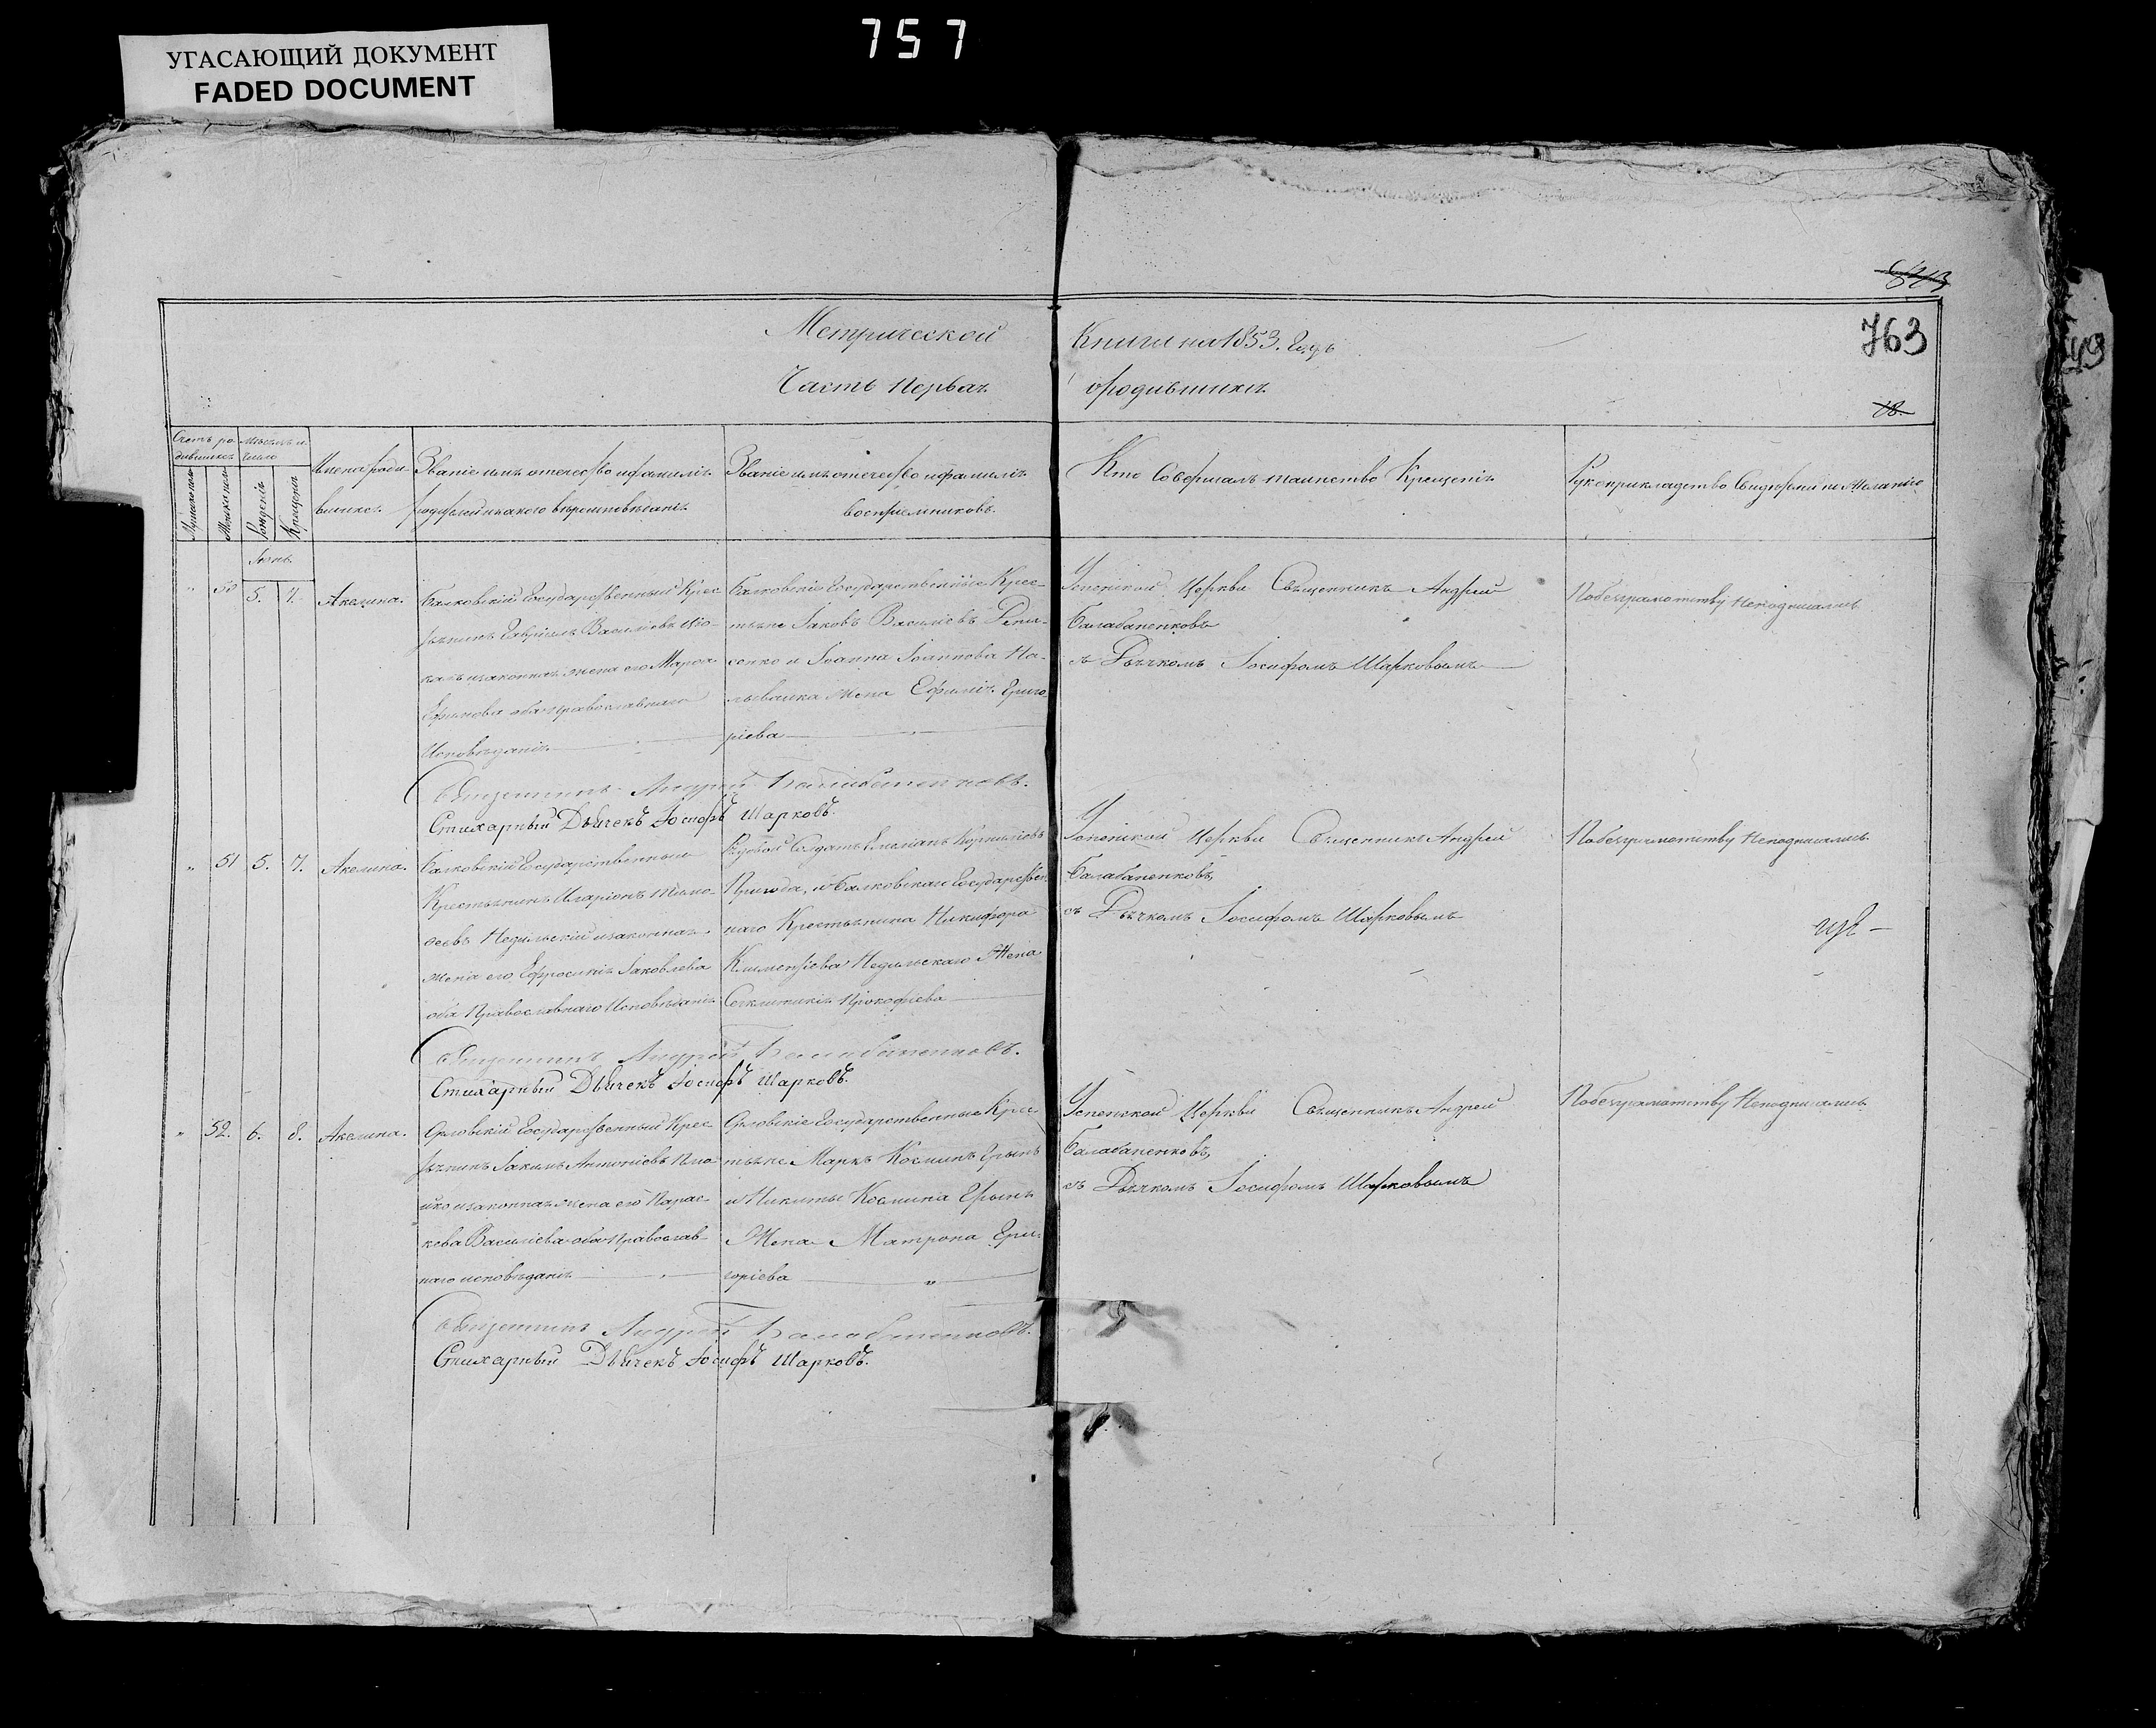 757
УГАСАЮЩИЙ ДОКУМЕНТ
FADED DOCUMENT
763
Метрической Книги на 1853. Годъ
Часть Первая о родившихся
18.
Счетъ ро
дившихся
Мужеска пола
Женска пола
Мѣсяцъ и
число
Рожденія
Крещенія
Имена роди
вшихся
Званіе имя отчество и фамилія
родителей и какого вѣроисповѣданія
Званіе имя отчество и фамилія
воспріемниковъ.
Кто Совершалъ таинство Крещенія
Рукоприкладство Свидѣтелей по Желанію
50
5.
7.
Акелина.
Балковскій Государственный Крес
тьянинъ Гавріилъ Василіевъ
законная жена его Марѳа
Ефимова оба православнаго
Исповѣданія
Балковскіе Государственные Крес-
тьяне Іаковъ Василіевъ
сенко и Іоанна Іоаннова На-
ливайка жена Ефимія Григо
ріева
Успенской Церкви Священникъ Андрей
Балабаненковъ
съ Дьячкомъ Іосифомъ Шарковымъ
Побезграмотству Неподписались
Священникъ Андрей Балабаненковъ.
Стихарный Дьячекъ Іосифъ Шарковъ.
51
5.
7.
Акелина.
Балковскій Государственный
Крестьянинъ Иларіонъ Тимо-
ѳеевъ Недильскій изаконная
жена его Ефросинія Іаковлева
оба Православнаго Исповѣданія
Рядовой Солдатъ Емеліанъ Корниліовъ
Пригода, и Балковскаго Государствен
наго Крестьянина Никифора
Климентіева Недильскаго Жена
Секлитикія Прокофіева
Успенской Церкви Священникъ Андрей
Балабаненковъ,
съ Дьячкомъ Іосифомъ Шарковымъ
Побезграмотству Неподписались
Священникъ Андрей Балабаненковъ.
Стихарный Дьячекъ Іосифъ Шарковъ.
52.
6.
8.
Акелина.
Орловскій Государственный Крес
тьянинъ Іакимъ Антоніевъ
изаконная жена его Парас-
кева Василіева оба Православ-
наго исповѣданія
Орловскіе Государственные Крес
тьяне Маркъ Косминъ Грынь
и Никиты Космина Грынь
Жена Матрона Гри-
горіева
Успенской Церкви Священникъ Андрей
Балабаненковъ,
съ Дьячкомъ Іосифомъ Шарковымъ
Побезграмотству Неподписались
Священникъ Андрей Балабаненковъ.
Стихарный Дьячекъ Іосифъ Шарковъ.